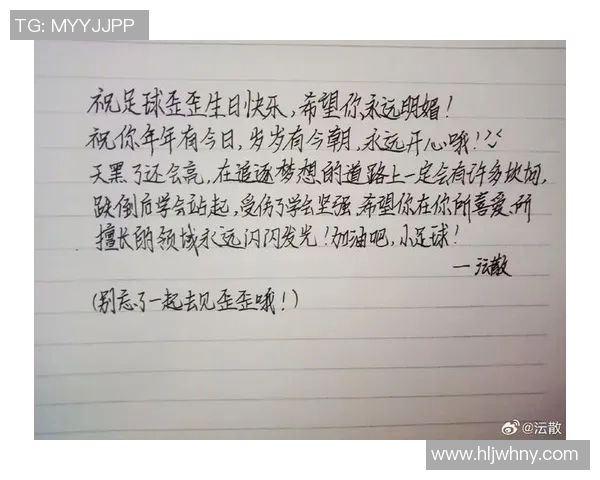 TG: MYYJJPP
祝足球歪歪生日快乐，希望你永远明媚！
祝你年年有今日，岁岁有今朝，永远开心哦！
天黑了还会亮，在追逐梦想的道路上一定会有许多坎坷，
跌倒后学会站起，受伤了学会坚强，希望你在你所喜爱、所
擅长的领域永远闪闪发光！加油吧，小足球！
—沄散
(别忘了一起去见歪歪哦！)
@沄散
www.hljwhny.com